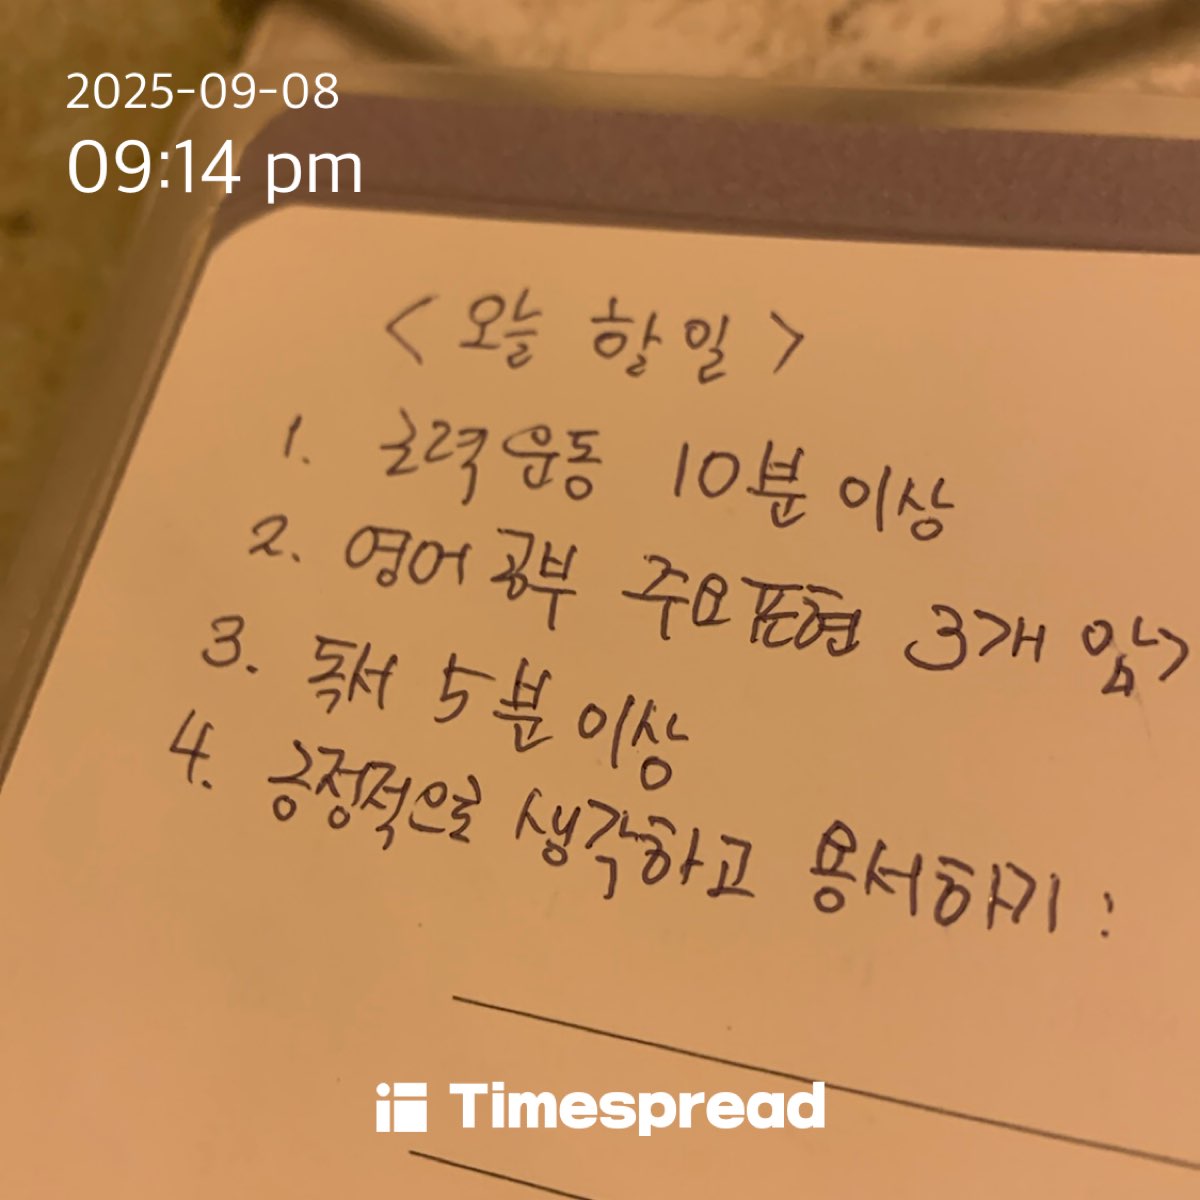 2025-09-08
09:14 pm
<오늘 할일>
1. 근력운동 10분 이상
2. 영어공부 주요표현 3개
3. 독서 5분 이상
4. 긍정적으로 생각하고 용서하기 :
Timespread